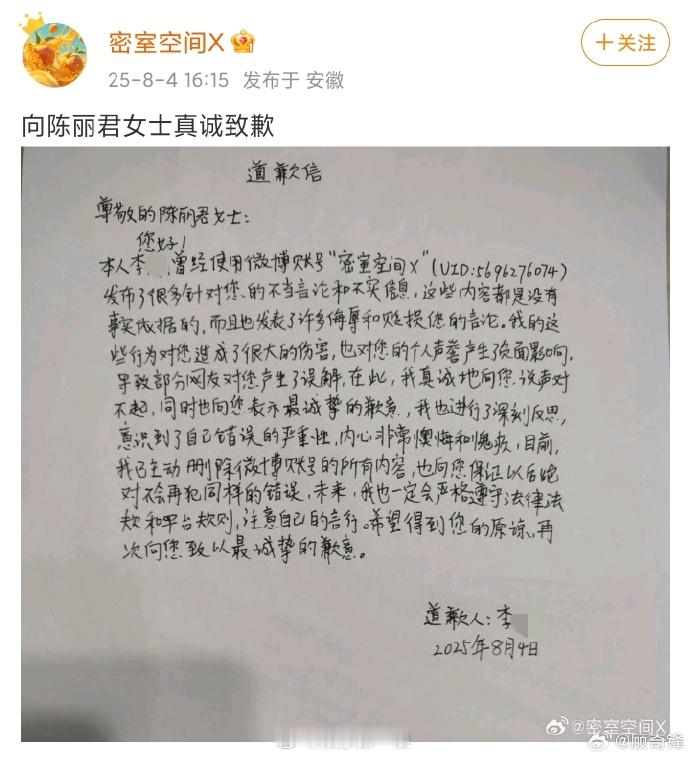 密室空间X
+关注
25-8-4 16:15 发布于 安徽
向陈丽君女士真诚致歉
道歉信
尊敬的陈丽君女士：
您好！
本人李 曾经使用微博账号"密室空间X"(UID:5696276074)
发布了很多针对您的不当言论和不实信息，这些内容都是没有
事实依据的，而且也发表了许多侮辱和贬损您的言论。我的这
些行为对您造成了很大的伤害，也对您的个人声誉产生了负面影响，
导致部分网友对您产生了误解，在此，我真诚地向您说声对
不起，同时也向您表示最诚挚的歉意，我也进行了深刻反思，
意识到了自己错误的严重性，内心非常懊悔和愧疚，目前，
我已主动删除微博账号的所有内容，也向您保证以后绝
对不会再犯同样的错误，未来，我也一定会严格遵守法律法
规和平台规则，注意自己的言行。希望得到您的原谅，再
次向您致以最诚挚的歉意。
道歉人：李
2025年8月4日
@密室空间X
@顾奇锋